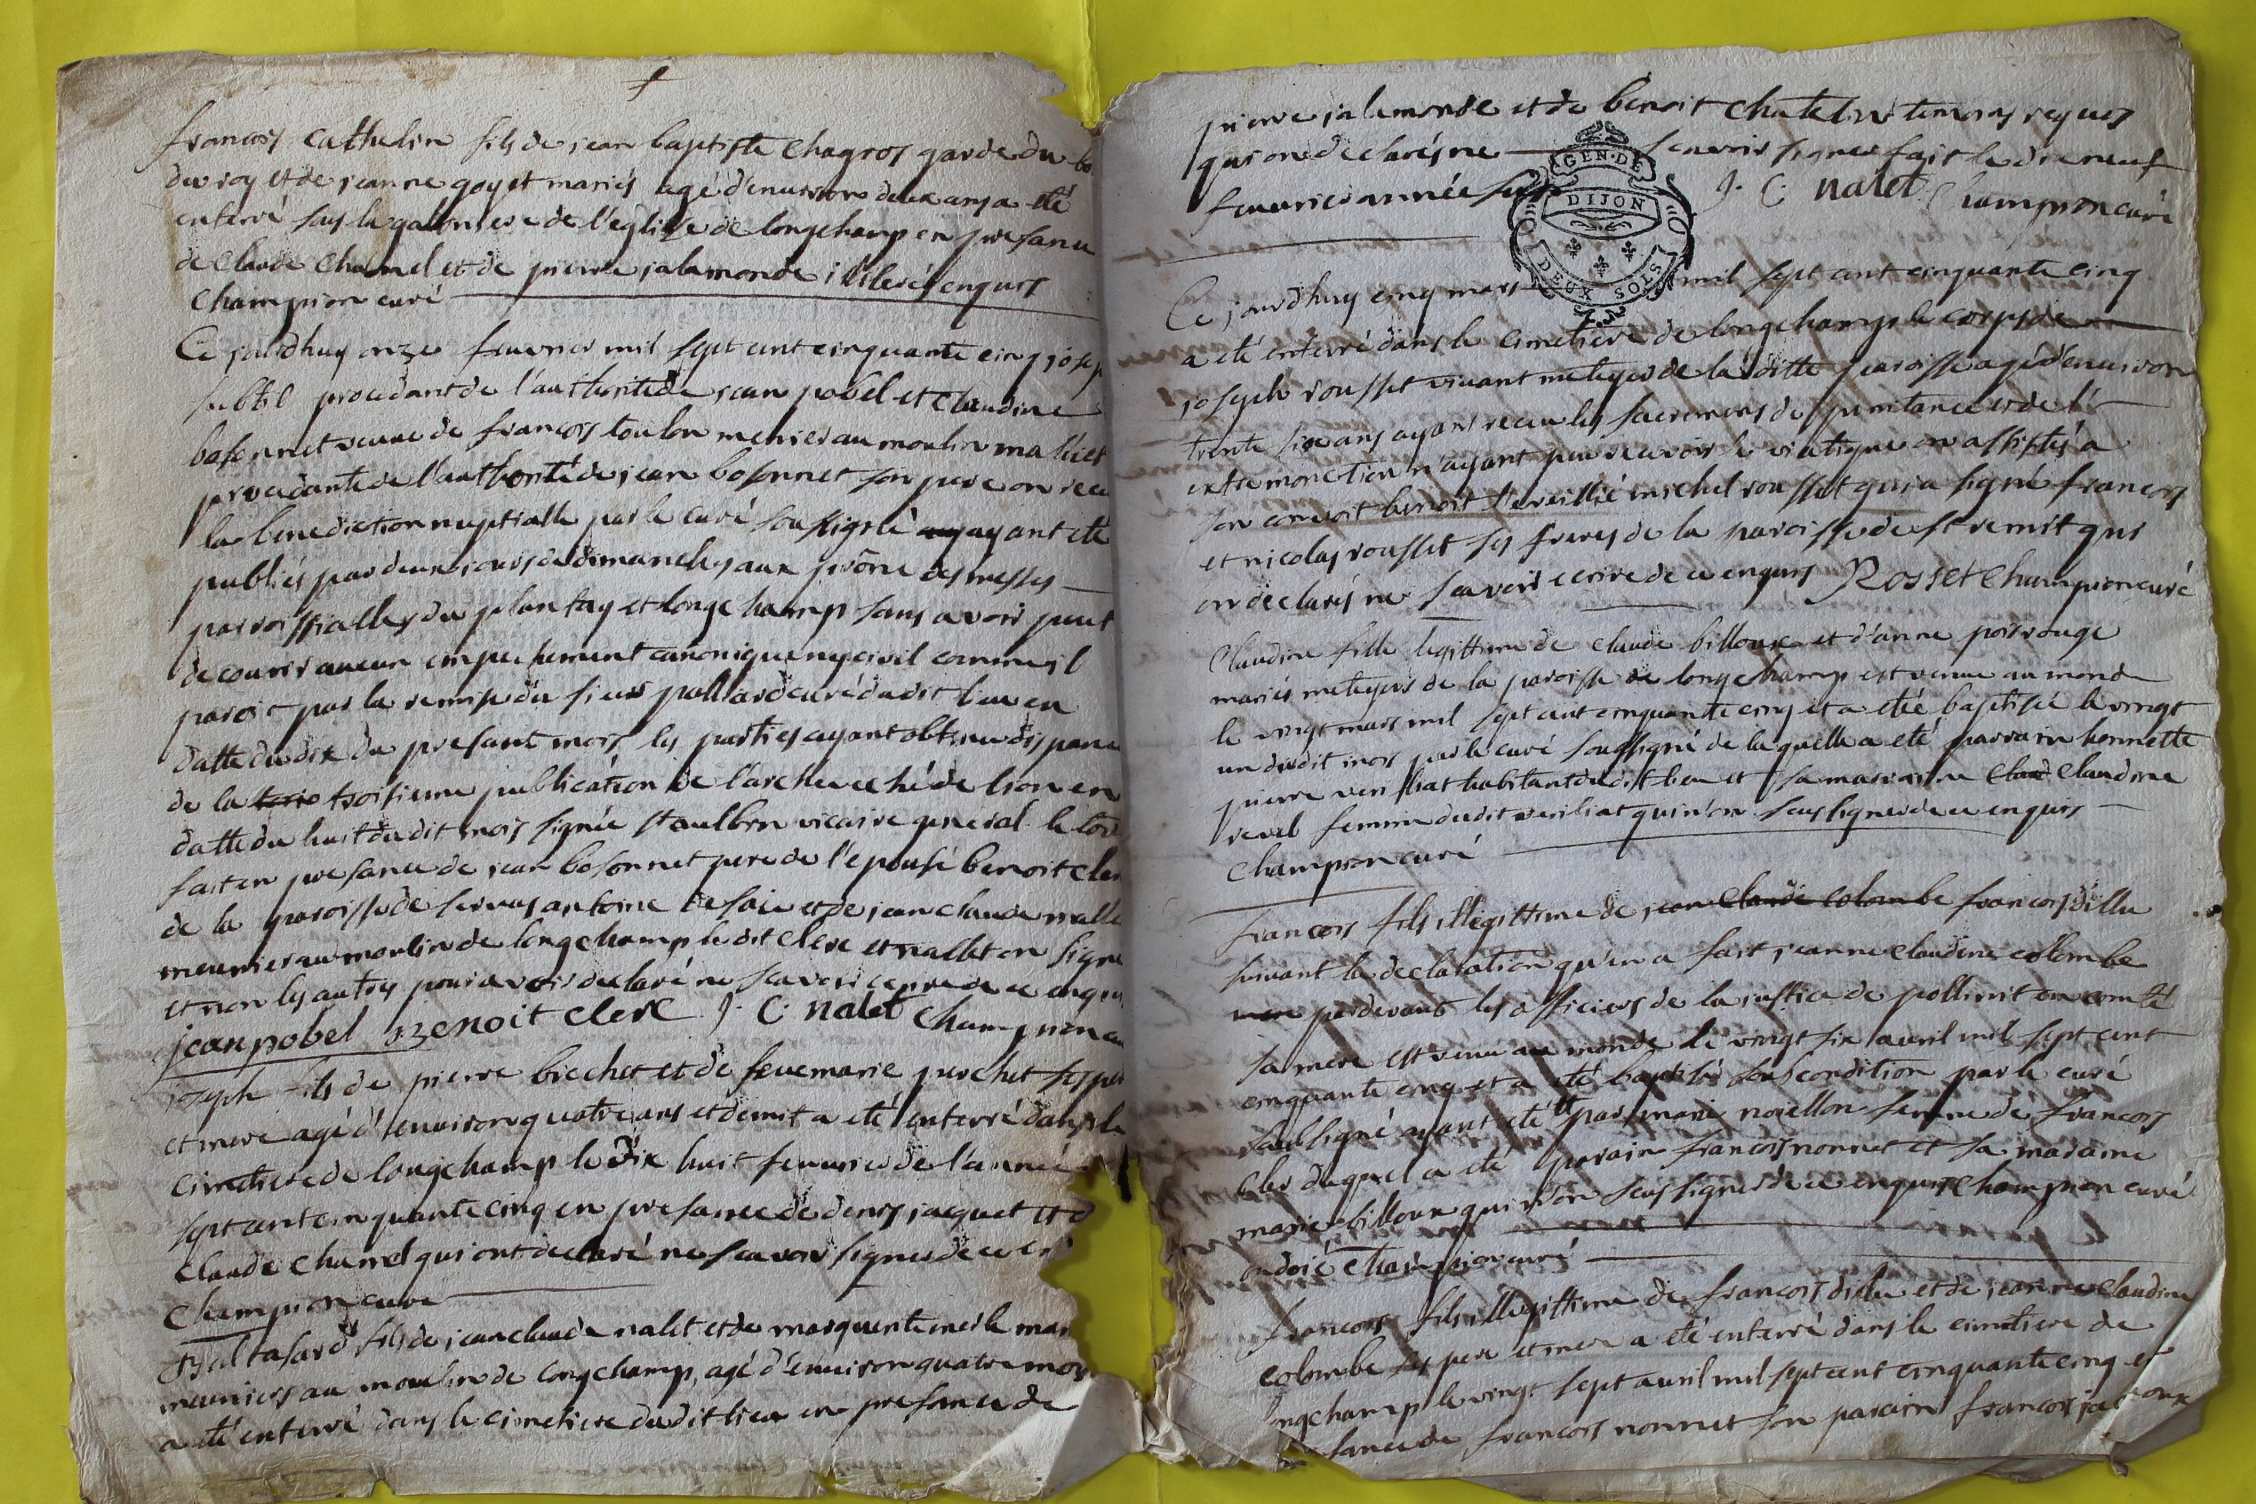 francois cathelin fils de jean baptiste chagros garde du
du roy et de jeanne goyet mariés agé d'environ deux ans a été
enterré sus la galoniere de l'eglise de longchamp en presance
de claude charnel et de pierre jalamonde illiterés enquis
Champion curé
Ce jourdhuy onze fevrier mil sept cent cinquante cinq josep
subtil procedant de l'authorité de jean pobel et Claudine
bosonnet veuve de francois toulon menier au moulin
procedante de l'authorité de jean bosonnet son pere on receu
la benediction nuptialle par le curé soussigné ayant été
publiés par deux jours de dimanches aux prône des messes
parroissialles du plantay et longchamp sans avoir peut
decouvrir aucun empechement canonique ny civil comme il
paroit par la remise du sieur pollard curé dudit lieu en
datte du dix du present mois les parties ayant obtenu dispance
de la troisieme publication de l'archeveché de lion en
datte du huit dudit mois signée st aulbin vicaire general le tout
fait en presance de jean bosonnet pere de l'epouse benoit clerc
de la paroisse de servas antoine et de jean claude nallet
meunier au moulin de longchamp ledit clerc et nallet on signé
et non les autres pour avoir declaré ne scavoir ecrire de ce enquis
jean pobel Benoit clerc J. C. nalet Champion curé
joseph fils de pierre brechet et de feue marie perchet ses pere
et mere agé d'environ quatre ans et demit a été enterré dans le
cimetiere de longchamp le dix huit fevrier de l'année
sept cent cinquante cinq en presance de denis jaquet et d
claude charnel qui ont declaré ne scavoir signer de ce en
Champion curé
Baltasard fils de jean claude nalet et de marguerite merle mar
meuniers au moulin de longchamp, agé d'environ quatre moi
a été enterré dans le cimetiere dudit lieu en presance de
pierre jalamonde et de benoit Chatelin temoins requis
qui on declarés ne scavoir signer fait le dix neuf
fevrier année J. C. nalet Champion curé
GEN. DE
DIJON
DEUX SOLS
Ce jourdhuy cinq mars mil sept cent cinquante cinq
a été enterré dans le cimetiere de longchamp le corps de
joseph rousset vivant metayer de laditte paroisse agé d'environ
trente six ans ayant receu les sacremens de penitance et de l'
extremonction n'ayant peu recevoir le viatique on assistés a
son convoit benoit michel rousset qui a signé francois
et nicolas rousset ses freres de la paroisse de st remit qui
on declarés ne scavoir ecrire de ce enquis Rosset Champion curé
Claudine fille legittime de claude billoux et d'anne poirouge
mariés metayers de la paroisse de longchamp est venue au monde
le vingt mars mil sept cent cinquante cinq et a été baptisée le vingt
un dudit mois par le curé soussigné de laquelle a été parrain honnette
pierre habitant dudit lieu et sa maraine claud claudine
revel femme dudit qui n'on seus signer de ce enquis
Champion curé
francois fils illegittime de jean claude colombe francois dillu
suivant la declaration qu'en a fait jeanne claudine colombe
pardevant les officiers de la justice de
sa mere est venu au monde le vingt six avril mil sept cent
cinquante cinq et a été baptisé sous condition par le curé
soussigné ayant été par marie novellon femme de francois
duquel a été parain francois nonnet et sa maraine
marie billoux qui n'on seus signer de ce enquis Champion curé
ondoié Champion curé
francois fils illegittime de francois dillu et de jeanne claudine
colombe ses pere et mere a été enterré dans le cimetiere de
longchamp le vingt sept avril mil sept cent cinquante cinq en
sance de francois nonnet son parain francois